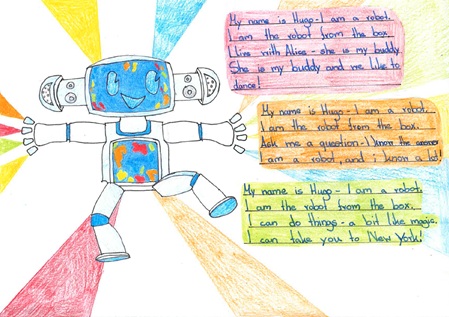 My name is Hugo - I am a robot.
I am the robot from the box.
I live with Alice - she is my buddy
She is my buddy and we like to
dance!
My name is Hugo - I am a robot.
I am the robot from the box.
Ask me a question - I know the
I am a robot, and i know a lot
My name is Hugo - I am a robot.
I am the robot from the box.
I can do things - a bit like magic,
I can take you to New York!